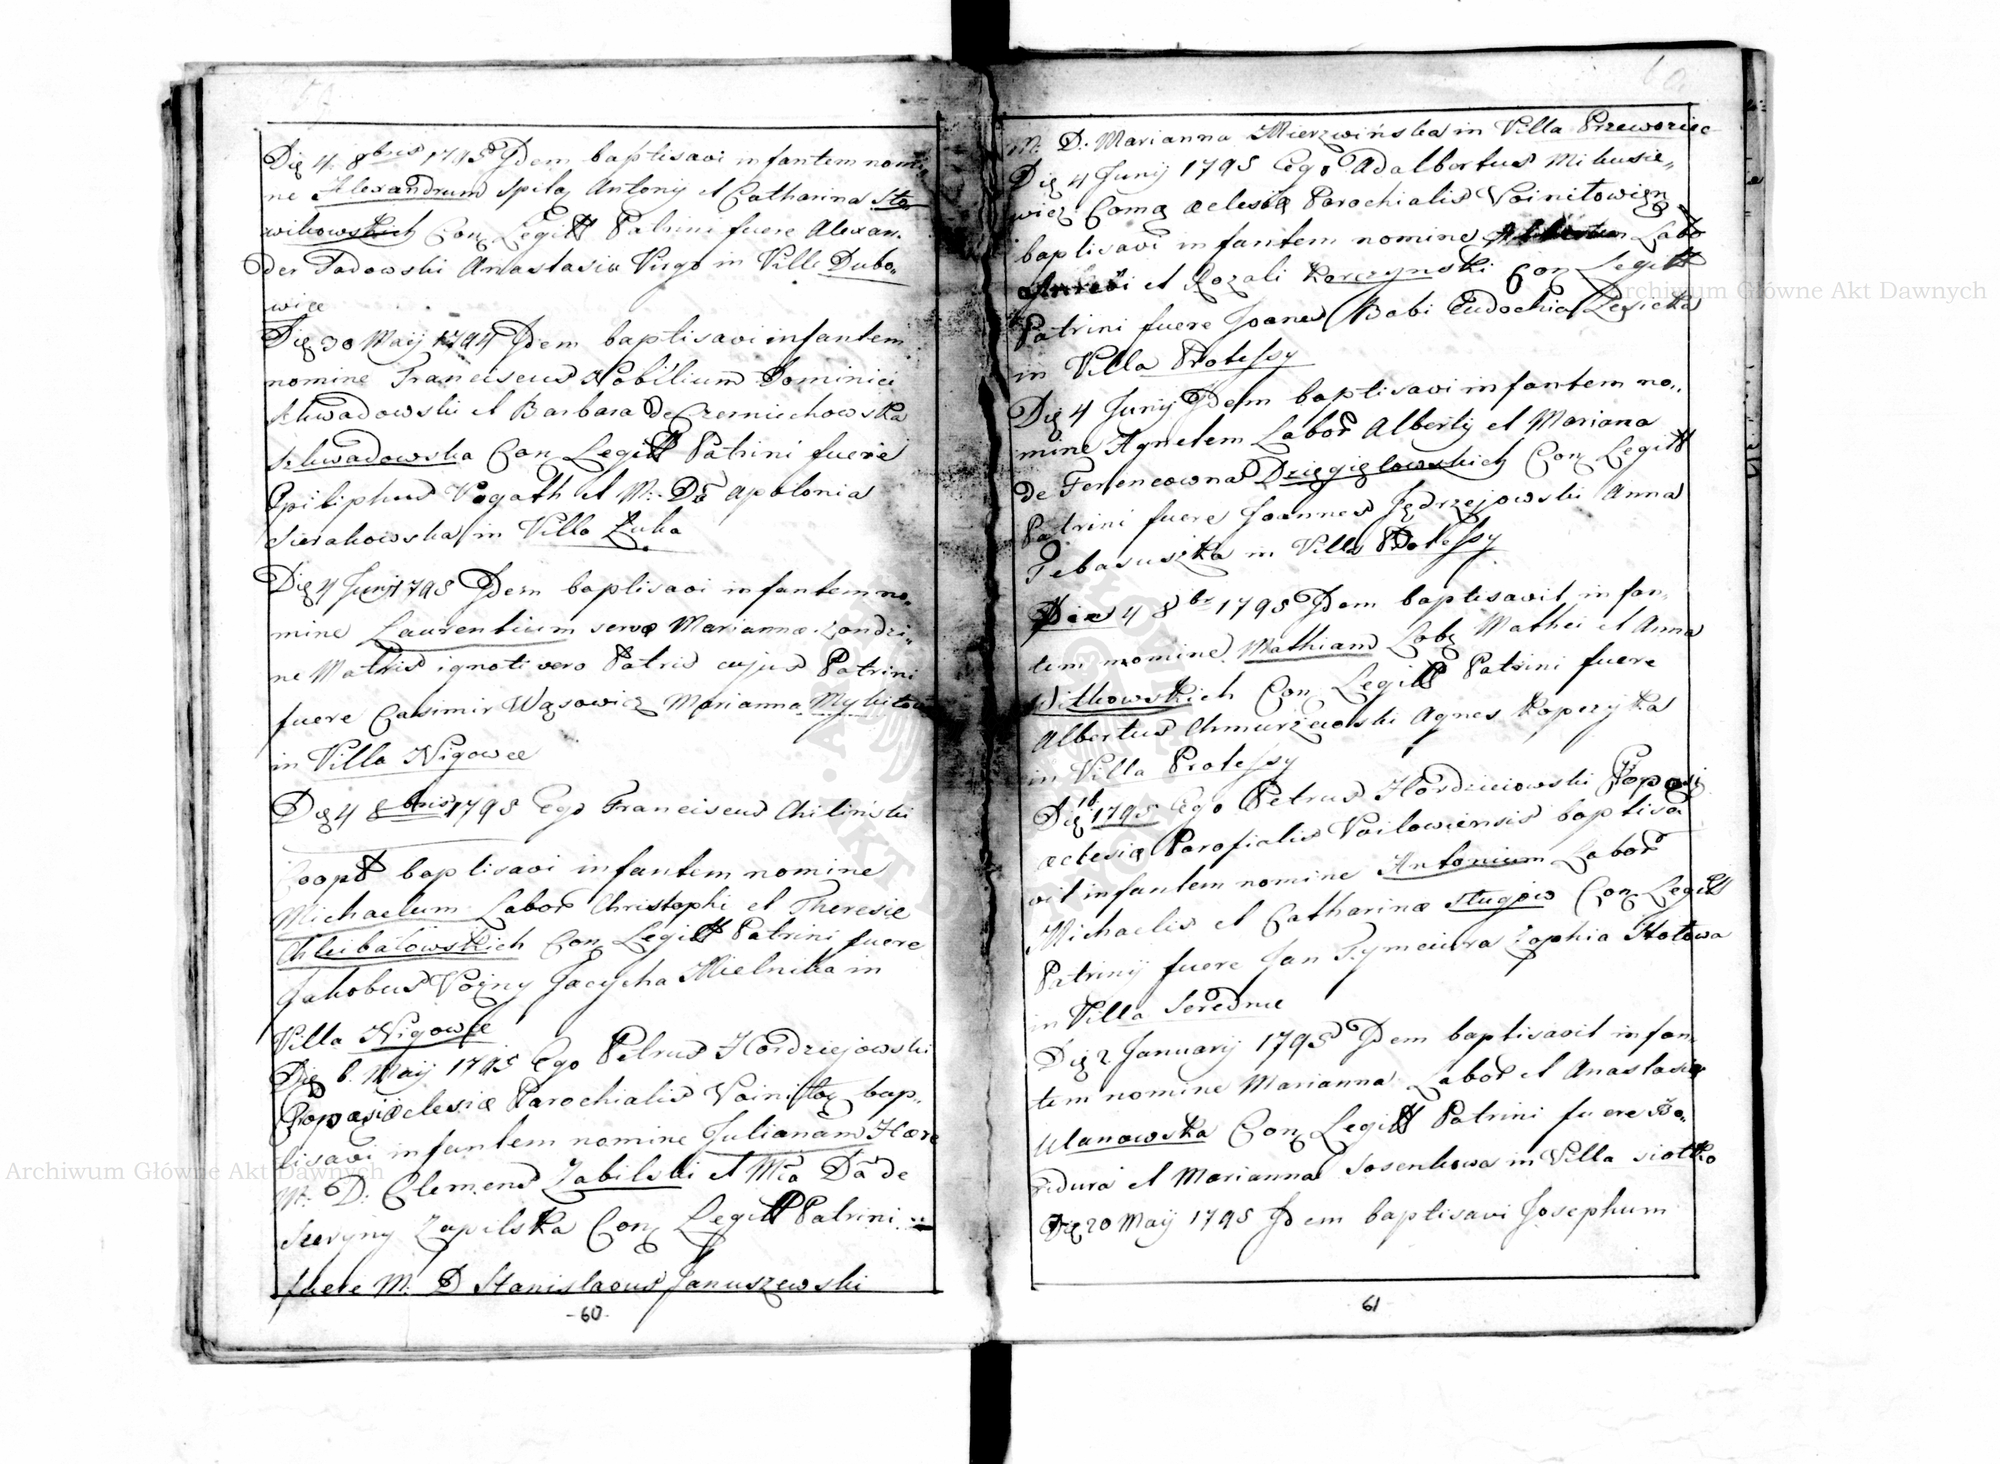 Die 4. 8bris 1795 Jdem baptisavi infantem nomi
ne Alexandrum Spila Antonij et Catharina Sta
wikowskich Con Legitt Patrini fuere Alexan.
der Sadowski Anastasia Virgo in Villa Dubo„
wice
Die 30 Maij 1794 Jdem baptisavi infantem
nomine Franciscus Nobilium Dominici
et Barbara de Czemiechowska
Con Legitt Patrini fuere
et M. Da Apolonia
Sierakowska in Villa Łuka
Die 4 Junij 1795 Jdem baptisavi infantem no„
mine Laurentium servæ Mariannæ
ne Matris ignoti vero Patris cujus Patrini
fuere Casimir Wąsowicz Marianna
in Villa Nigowce
Die 4 8bris 1795 Ego Franciscus Chiliński
Coopr baptisavi infantem nomine
Michaelum Labor Christophi et Theresie
Chlibałowskich Con Legitt Patrini fuere
Jakobus Vożny Jacycha Mielnika in
Villa Nigowce
Die 6. Maij 1795 Ego Petrus Hordziejowski
æclesiæ Parochialis bap„
tisavi infantem nomine Julianam
M. D. Clemens Zabilski et Mia Da de
Zapilska Con Legitt Patrini
fuere M. D Stanislaous Januszewski
-60-
M. D. Marianna Mierzwińska in Villa Przewoziec
Die 4 Junij 1795 Ego Adalbertus Mikusie„
wicz æclesiæ Parochialis
baptisavi infantem nomine Labor
et Rozali Korczynski Con Legitt
Patrini fuere Joanes Babi Eudochia Lesicka
in Villa Protessy
Die 4 Junij Jdem baptisavi infantem no„
mine Agnetem Labor Albertij et Mariana
de Ferencowna Dzięgielowskich Con Legitt
Patrini fuere Joannes Jędrzejowski Anna
in Villa Protessy
Die 4 8br 1795 Jdem baptisavit infan„
tem nomine Mathiam Lab Mathei et Anna
Witkowskich Con Legitt Patrini fuere
Albertus Chmurzewski Agnes Kopczyka
in Villa Protessy
Die 1795 Ego Petrus Hordzieiowski
æclesiæ Parofialis baptisa
vit infantem nomine Antonium Labor
Michaelis et Catharinæ Sługow Con Legitt
Patrinij fuere Jan Zophia
in Villa Serednie
Die 2 Januarij 1795 Jdem baptisavit infan„
tem nomine Marianna Labor et Anastasia
Ulanowska Con Legitt Patrini fuere
et Marianna Sosenkowa in Villa siołko
Die 20 Maij 1795 Jdem baptisavi Josephum
61
Archiwum Główne Akt Dawnych
Archiwum Główne Akt Dawnych